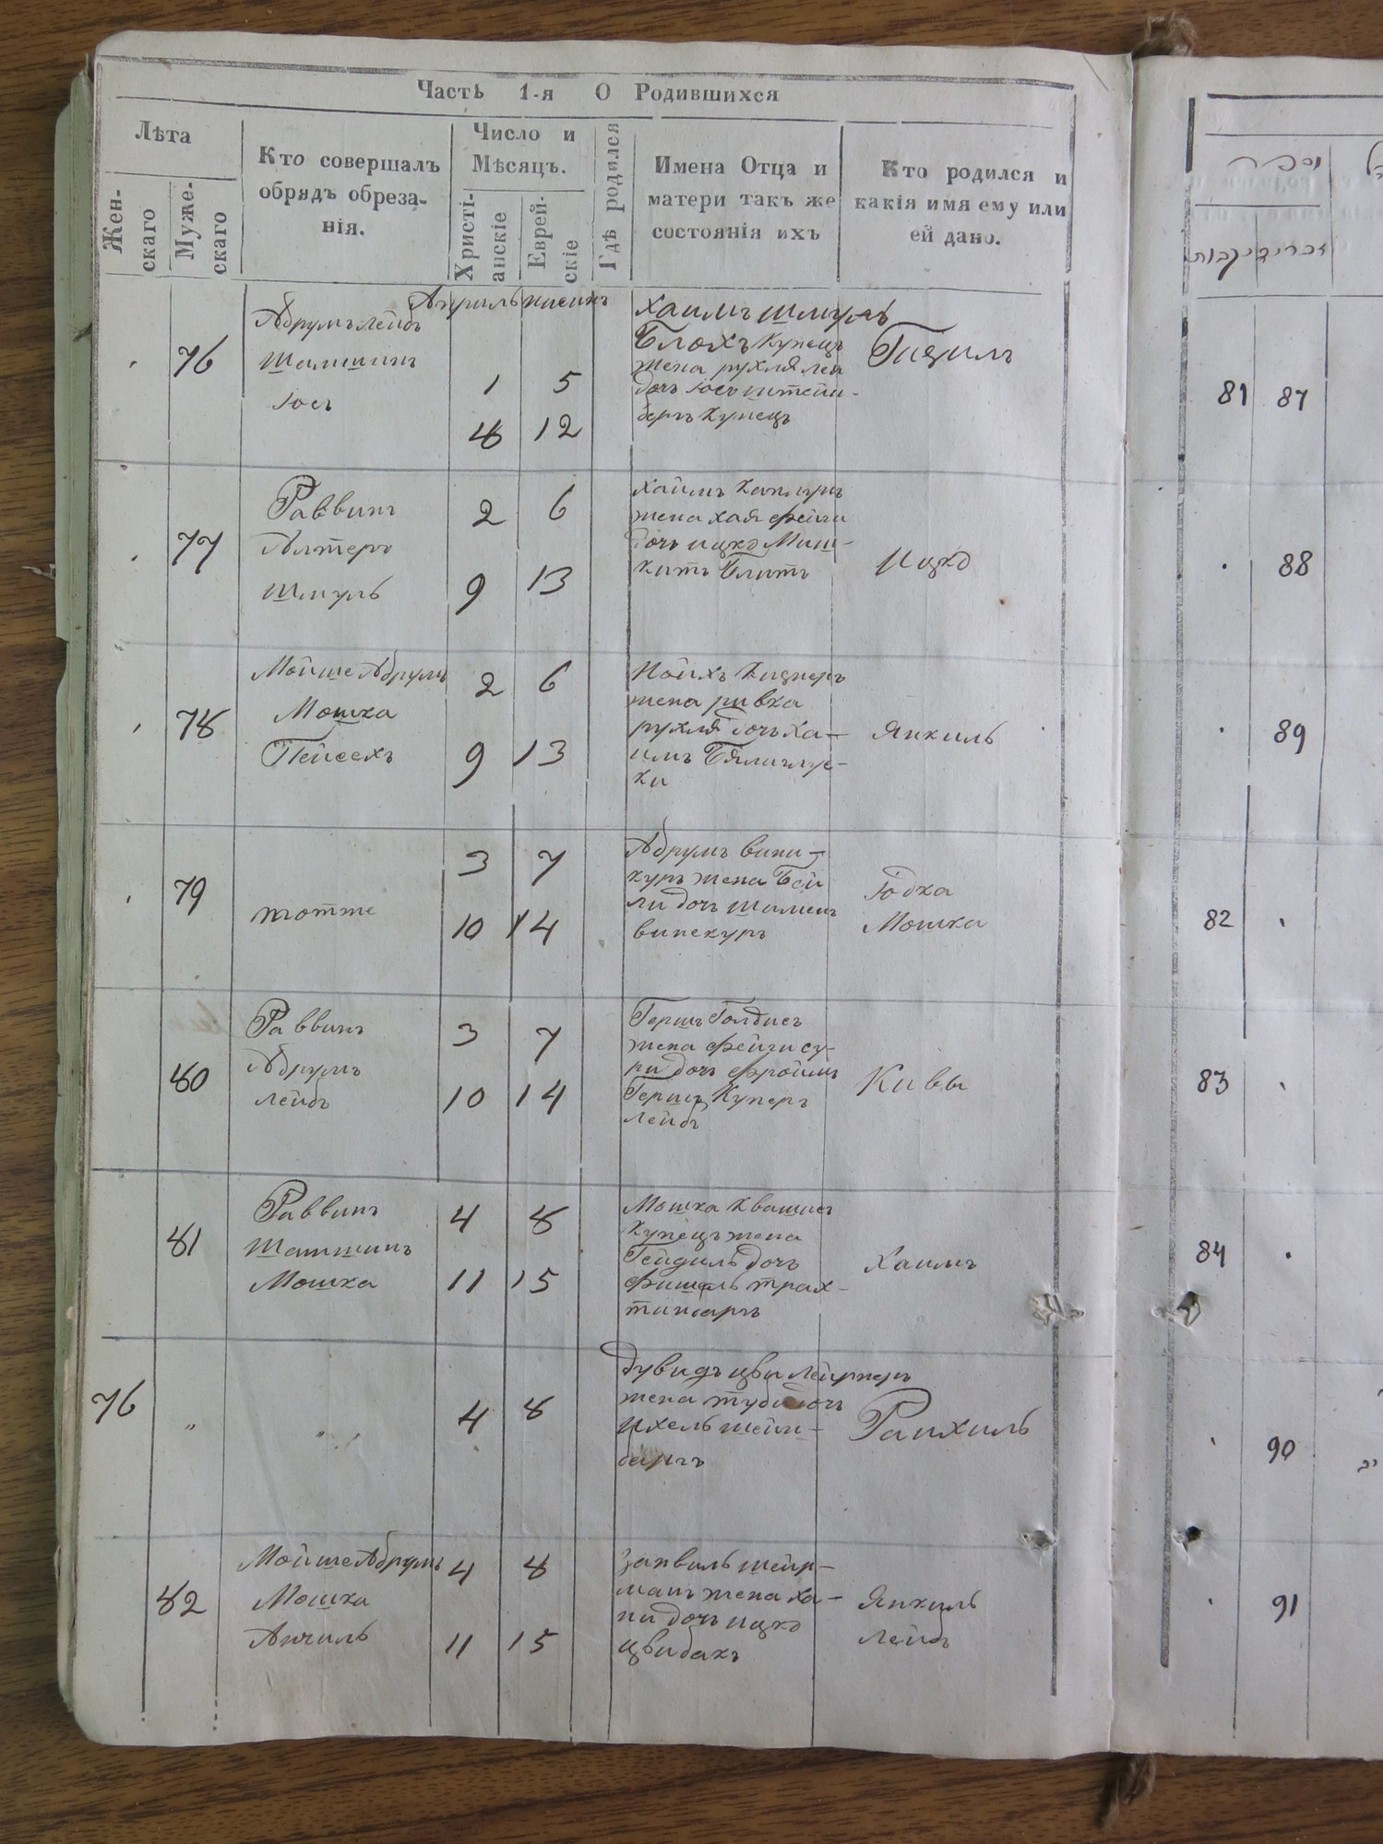 Часть 1-я О Родившихся
Лѣта
Жен-
скаго
Муже-
скаго
Кто совершалъ
обрядъ обреза-
нія.
Число и
Мѣсяцъ.
Христі-
анскіе
Еврей-
скіе
Гдѣ родился
Имена Отца и
матери такъ же
состоянія ихъ
Кто родился и
какія имя ему или
ей дано.
76
Абрумъ лейбъ
Шамшинъ
Іосъ
Априль нисинъ
1 5
8 12
Хаимъ шмуль
Блохъ купецъ
жена рухля леи
берхъ купецъ
77
Раввинъ
Алтеръ
Шмуль
2 6
9 13
Хаимъ
жена хая фейги
дочь ицко Миш-
Ицко
78
Мойше Абрумъ
Мошка
Пейсехъ
2 6
9 13
жена ривка
рухля дочь Ха-
имъ
ки
Янкиль
79
тотже
3 7
10 14
Абрумъ вини-
куръ жена Бей
ли дочь
винекуръ
Юдка
Мошка
80
Раввинъ
Абрумъ
лейбъ
3 7
10 14
Гершъ Голдисъ
жена фейги су-
ри дочь фроимъ
Гершъ Куперъ
лейбъ
Кивы
81
Раввинъ
Шамшинъ
Мошка
4 8
11 15
Мошка Квашисъ
купецъ жена
Гейдиль дочь
фишель трах-
тинбаръ
Хаимъ
76 „ „
4 8
Дувидъ цви
жена туба дочь
ихель шейн-
бергъ
Раихиль
82
Мойше Абрумъ
Мошка
Анчиль
4 8
11 15
Занвиль шейр-
манъ жена ха-
ни дочь ицко
цвибакъ
Янкиль
лейбъ
מספר
הזכרים
הנקבות
81 87
88
89
82
83
84
90
91